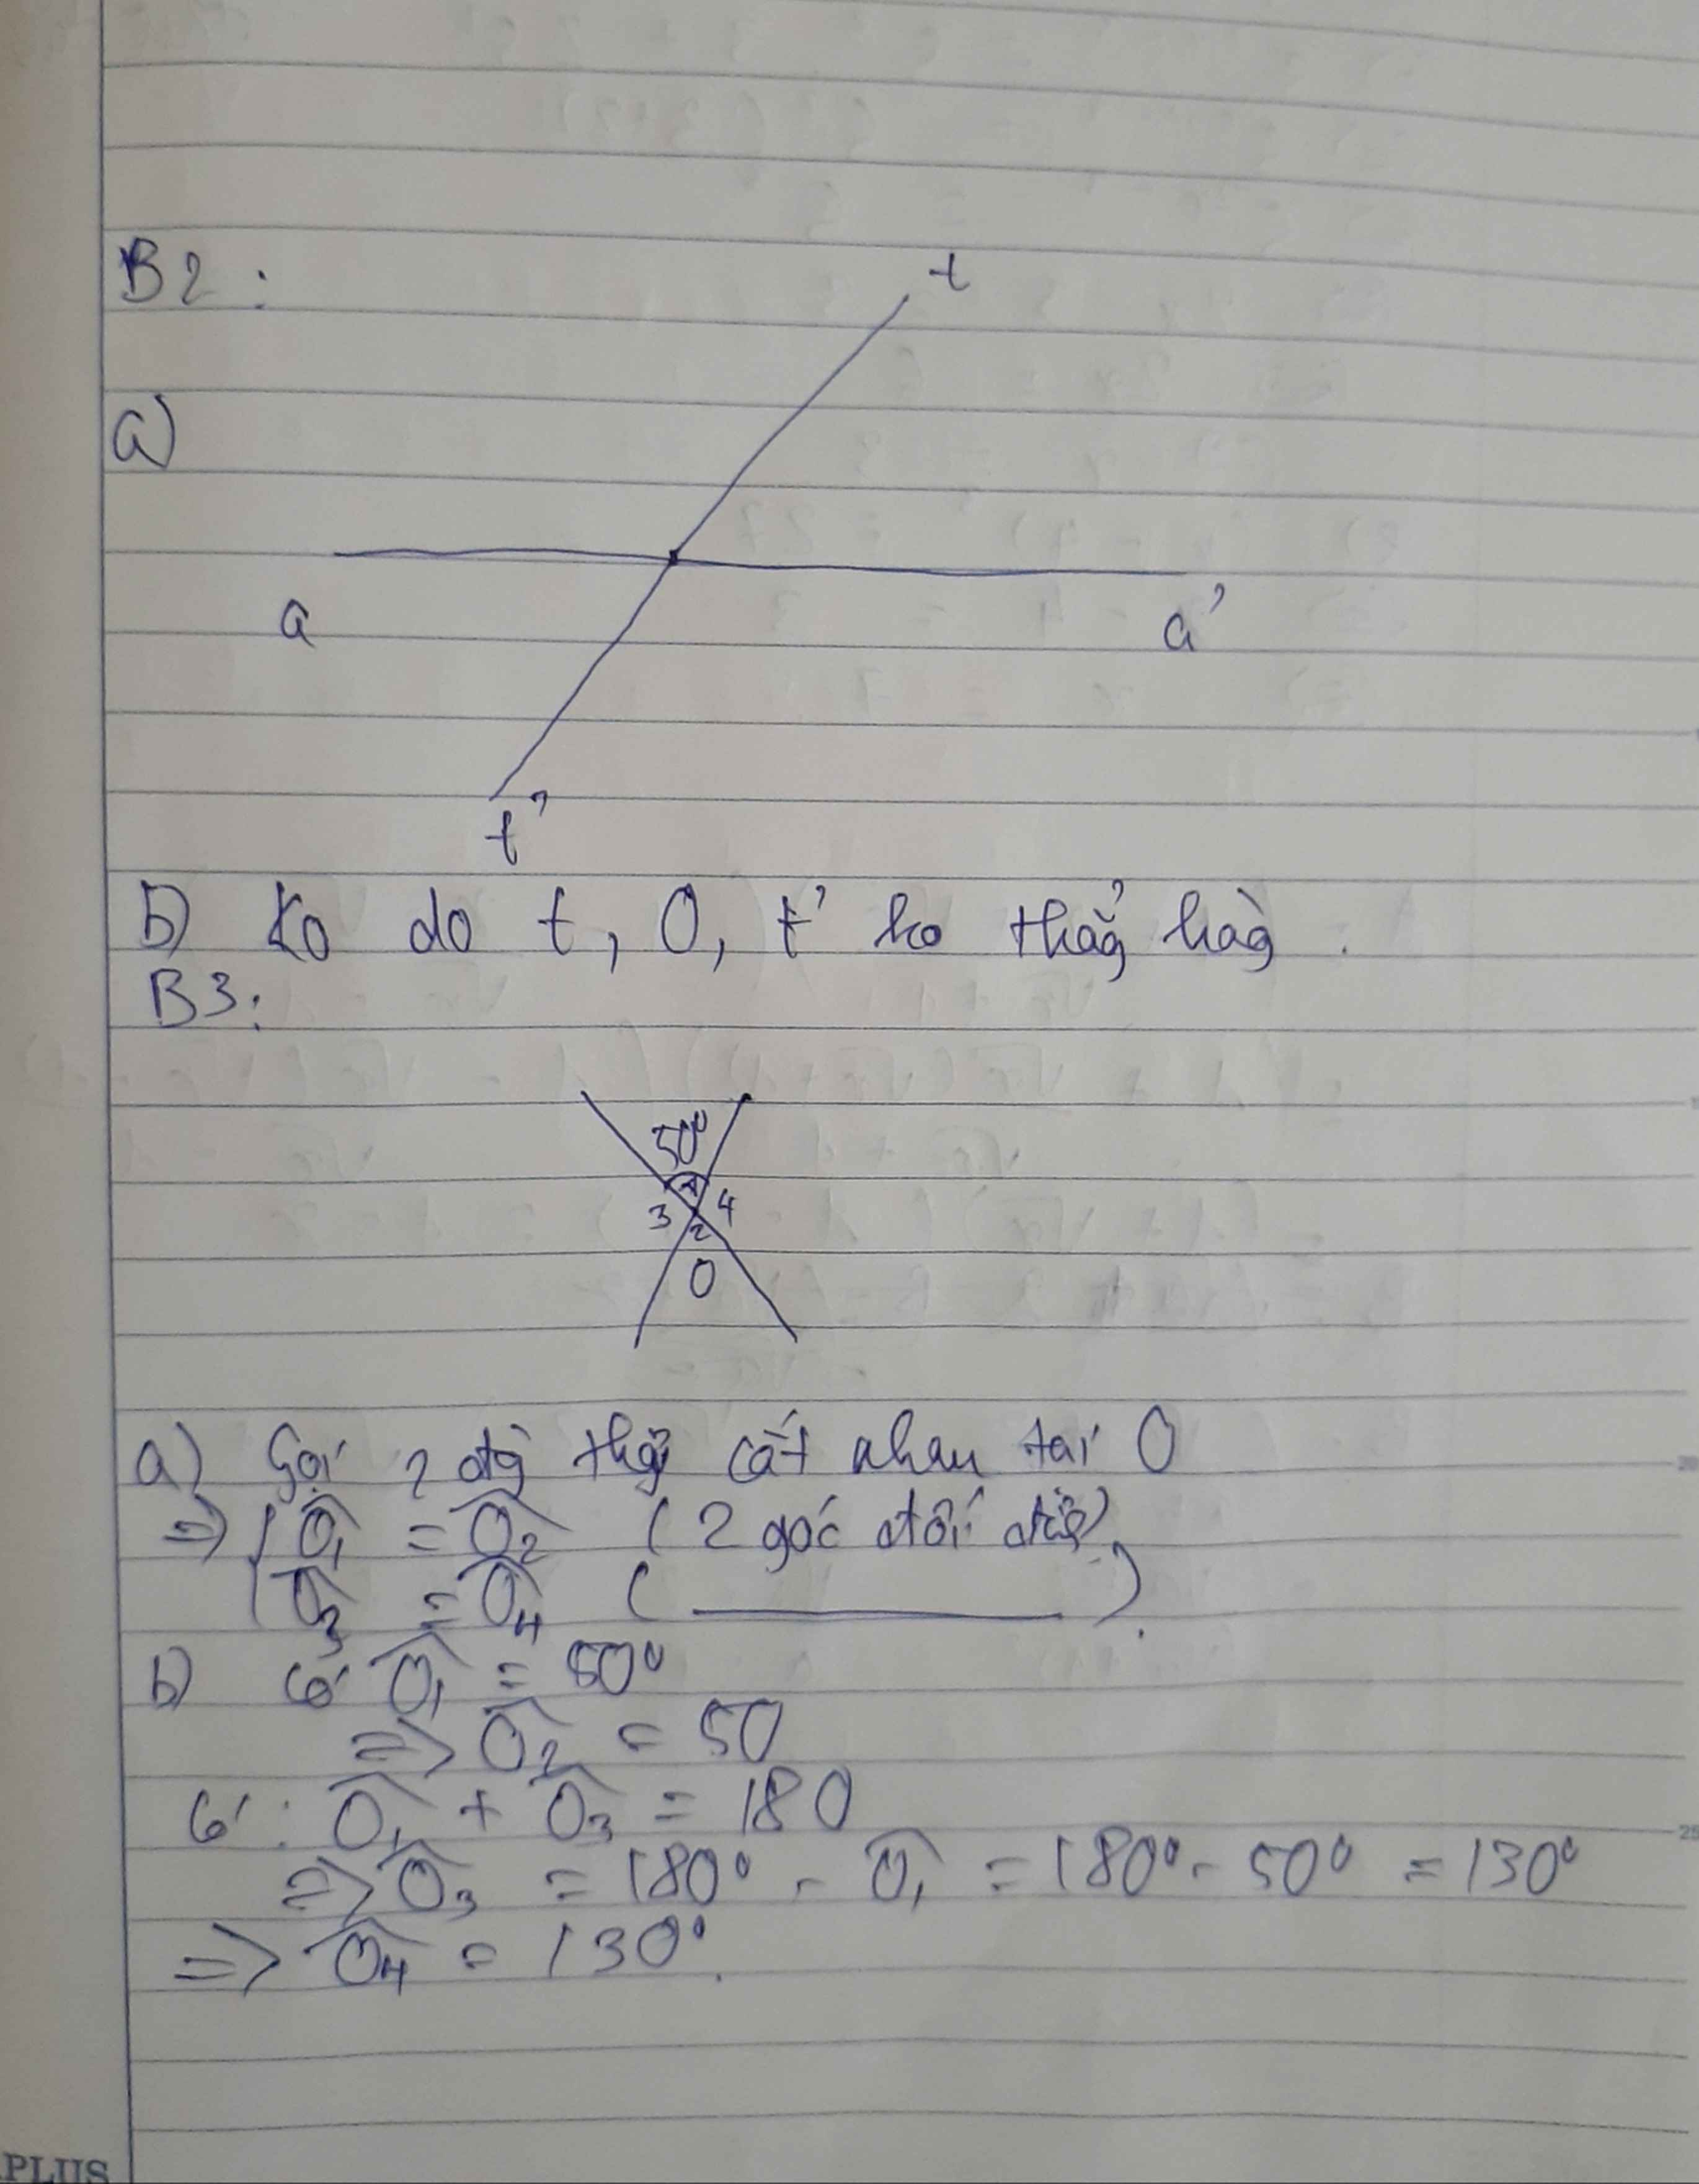 B2:
t
a)
a a'
t'
b) Ko do t, O, t' ko thẳg hàg.
B3:
50°
1
3 4
2
O
a) Gọi 2 đg thg cắt nhau tại O
=> { Ô1 = Ô2 (2 góc đối đỉ)
Ô3 = Ô4 ( ——— ).
b) Có Ô1 = 50°
=> Ô2 = 50
Có: Ô1 + Ô3 = 180
=> Ô3 = 180° - Ô1 = 180° - 50° = 130°
=> Ô4 = 130°.
PLUS